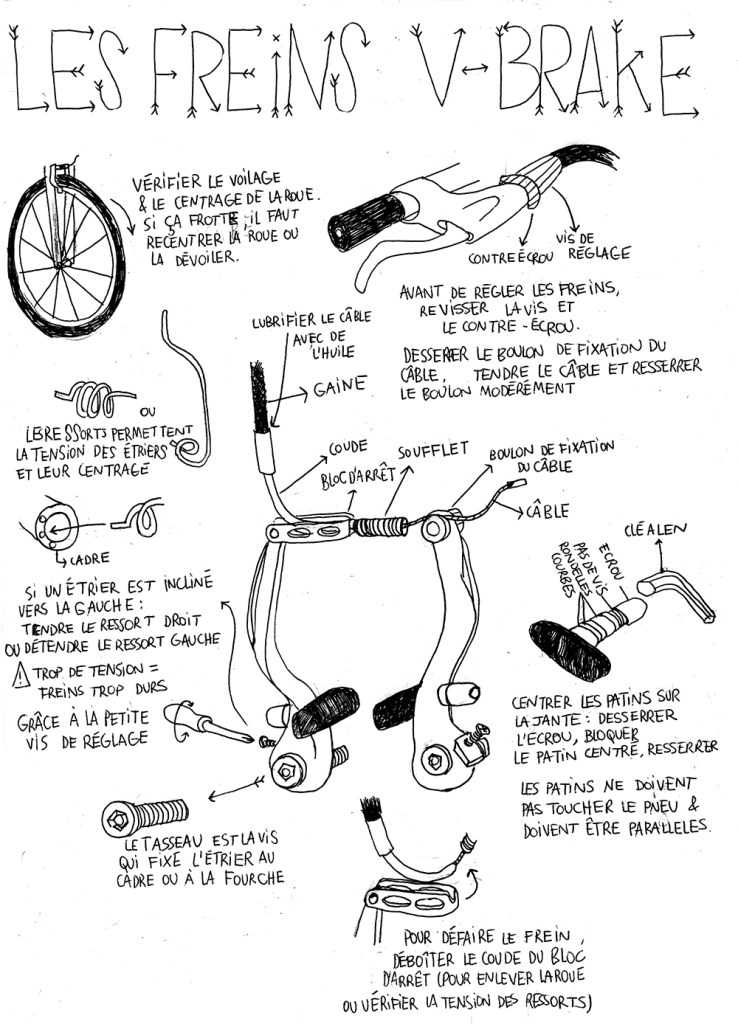 LES FREINS V-BRAKE
VÉRIFIER LE VOILAGE
& LE CENTRAGE DE LA ROUE.
SI ÇA FROTTE, IL FAUT
RECENTRER LA ROUE OU
LA DÉVOILER.
CONTRE ÉCROU
VIS DE
RÉGLAGE
AVANT DE RÉGLER LES FREINS,
REVISSER LA VIS ET
LE CONTRE-ÉCROU.
DESSERRER LE BOULON DE FIXATION DU
CÂBLE, TENDRE LE CÂBLE ET RESSERRER
LE BOULON MODÉRÉMENT
LUBRIFIER LE CÂBLE
AVEC DE
L'HUILE
GAINE
OU
LES RESSORTS PERMETTENT
LA TENSION DES ÉTRIERS
ET LEUR CENTRAGE
CADRE
COUDE
BLOC D'ARRÊT
SOUFFLET
BOULON DE FIXATION
DU CÂBLE
CÂBLE
CLÉ ALEN
ECROU
PAS DE VIS
RONDELLES
COURBES
SI UN ÉTRIER EST INCLINÉ
VERS LA GAUCHE :
TENDRE LE RESSORT DROIT
OU DÉTENDRE LE RESSORT GAUCHE
! TROP DE TENSION =
FREINS TROP DURS
GRÂCE À LA PETITE
VIS DE RÉGLAGE
CENTRER LES PATINS SUR
LA JANTE : DESSERRER
L'ECROU, BLOQUER
LE PATIN CENTRÉ, RESSERRER
LES PATINS NE DOIVENT
PAS TOUCHER LE PNEU &
DOIVENT ÊTRE PARALLELES.
LE TASSEAU EST LA VIS
QUI FIXE L'ÉTRIER AU
CADRE OU À LA FOURCHE
POUR DÉFAIRE LE FREIN,
DÉBOÎTER LE COUDE DU BLOC
D'ARRÊT (POUR ENLEVER LA ROUE
OU VÉRIFIER LA TENSION DES RESSORTS)